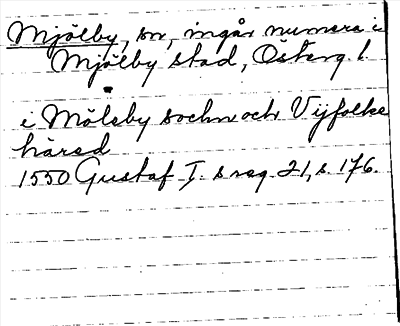 Mjölby, sn, ingår numera i
Mjölby stad, Österg. l.
i Mölsby sochn och Vijfolke
härad
1550 Gustaf I:s reg. 21, s. 176.